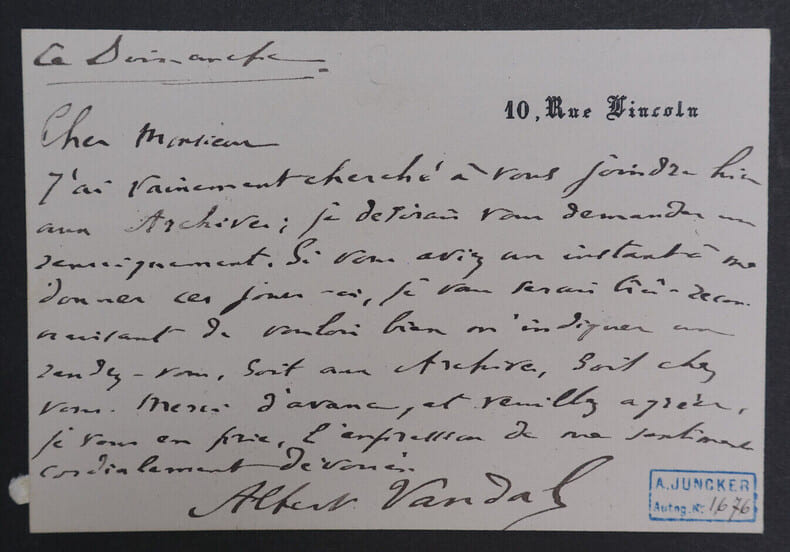 Ce Dimanche
10, Rue Lincoln
Cher Monsieur
J'ai vainement cherché à vous joindre hier
aux Archives; je désirais vous demander un
renseignement. Si vous aviez un instant à me
donner ces jours-ci, je vous serais très-recon
naissant de vouloir bien m'indiquer un
rendez-vous, soit aux Archives, soit chez
vous. Merci d'avance, et veuillez agréer,
je vous en prie, l'expression de mes sentiments
cordialement dévoués.
Albert Vandal
A. JUNCKER
Autog. Nr. 1676